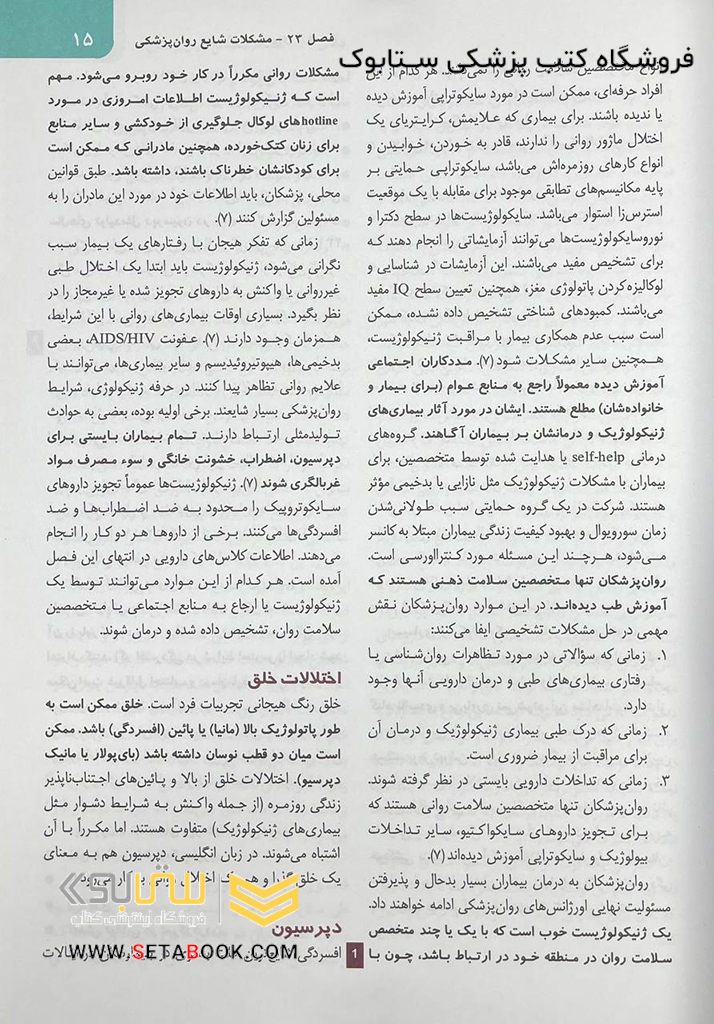 فصل ۲۳ - مشکلات شایع روان‌پزشکی
۱۵
فروشگاه کتب پزشکی ستابوک
انواع متخصصین سلامت روانی را نمی‌دهند. هر کدام از این
افراد حرفه‌ای، ممکن است در مورد سایکوتراپی آموزش دیده
یا ندیده باشند. برای بیماری که علایمش، کرایتریای یک
اختلال ماژور روانی را ندارند، قادر به خوردن، خوابیدن و
انواع کارهای روزمره‌اش می‌باشد، سایکوتراپی حمایتی بر
پایه مکانیسم‌های تطابقی موجود برای مقابله با یک موقعیت
استرس‌زا استوار می‌باشد. سایکولوژیست‌ها در سطح دکترا و
نوروسایکولوژیست‌ها می‌توانند آزمایشاتی را انجام دهند که
برای تشخیص مفید می‌باشند. این آزمایشات در شناسایی و
لوکالیزه‌کردن پاتولوژی مغز، همچنین تعیین سطح IQ مفید
می‌باشند. کمبودهای شناختی تشخیص داده نشده، ممکن
است سبب عدم همکاری بیمار با مراقبت ژنیکولوژیست،
همچنین سایر مشکلات شود (۷). مددکاران اجتماعی
آموزش دیده معمولاً راجع به منابع عوام (برای بیمار و
خانواده‌شان) مطلع هستند. ایشان در مورد آثار بیماری‌های
ژنیکولوژیک و درمانشان بر بیماران آگاهند. گروه‌های
درمانی self-help یا هدایت شده توسط متخصصین، برای
بیماران با مشکلات ژنیکولوژیک مثل نازایی یا بدخیمی مؤثر
هستند. شرکت در یک گروه حمایتی سبب طولانی‌شدن
زمان سورویوال و بهبود کیفیت زندگی بیماران مبتلا به کانسر
می‌شود، هرچند این مسئله مورد کنتراورسی است.
روان‌پزشکان تنها متخصصین سلامت ذهنی هستند که
آموزش طب دیده‌اند. در این موارد روان‌پزشکان نقش
مهمی در حل مشکلات تشخیصی ایفا می‌کنند:
۱. زمانی که سؤالاتی در مورد تظاهرات روان‌شناسی یا
رفتاری بیماری‌های طبی و درمان دارویی آنها وجود
دارد.
۲. زمانی که درک طبی بیماری ژنیکولوژیک و درمان آن
برای مراقبت از بیمار ضروری است.
۳. زمانی که تداخلات دارویی بایستی در نظر گرفته شوند.
روان‌پزشکان تنها متخصصین سلامت روانی هستند که
برای تجویز داروهای سایکواکتیو، سایر تداخلات
بیولوژیک و سایکوتراپی آموزش دیده‌اند (۷).
روان‌پزشکان به درمان بیماران بسیار بدحال و پذیرفتن
مسئولیت نهایی اورژانس‌های روان‌پزشکی ادامه خواهند داد.
یک ژنیکولوژیست خوب است که با یک یا چند متخصص
سلامت روان در منطقه خود در ارتباط باشد، چون با
مشکلات روانی مکرراً در کار خود روبرو می‌شود. مهم
است که ژنیکولوژیست اطلاعات امروزی در مورد
hotlineهای لوکال جلوگیری از خودکشی و سایر منابع
برای زنان کتک‌خورده، همچنین مادرانی که ممکن است
برای کودکانشان خطرناک باشند، داشته باشد. طبق قوانین
محلی، پزشکان، باید اطلاعات خود در مورد این مادران را به
مسئولین گزارش کنند (۷).
زمانی که تفکر هیجان یا رفتارهای یک بیمار سبب
نگرانی می‌شود، ژنیکولوژیست باید ابتدا یک اختلال طبی
غیرروانی یا واکنش به داروهای تجویز شده یا غیرمجاز را در
نظر بگیرد. بسیاری اوقات بیماری‌های روانی با این شرایط،
همزمان وجود دارند (۷). عفونت AIDS/HIV، بعضی
بدخیمی‌ها، هیپوتیروئیدیسم و سایر بیماری‌ها، می‌توانند با
علایم روانی تظاهر پیدا کنند. در حرفه ژنیکولوژی، شرایط
روان‌پزشکی بسیار شایعند. برخی اولیه بوده، بعضی به حوادث
تولیدمثلی ارتباط دارند. تمام بیماران بایستی برای
دپرسیون، اضطراب، خشونت خانگی و سوء مصرف مواد
غربالگری شوند (۷). ژنیکولوژیست‌ها عموماً تجویز داروهای
سایکوتروپیک را محدود به ضد اضطراب‌ها و ضد
افسردگی‌ها می‌کنند. برخی از داروها هر دو کار را انجام
می‌دهند. اطلاعات کلاس‌های دارویی در انتهای این فصل
آمده است. هر کدام از این موارد می‌توانند توسط یک
ژنیکولوژیست یا ارجاع به منابع اجتماعی یا متخصصین
سلامت روان، تشخیص داده شده و درمان شوند.
اختلالات خلق
خلق رنگ هیجانی تجربیات فرد است. خلق ممکن است به
طور پاتولوژیک بالا (مانیا) یا پائین (افسردگی) باشد. ممکن
است میان دو قطب نوسان داشته باشد (بای‌پولار یا مانیک
دپرسیو). اختلالات خلق از بالا و پائین‌های اجتناب‌ناپذیر
زندگی روزمره (از جمله واکنش به شرایط دشوار مثل
بیماری‌های ژنیکولوژیک) متفاوت هستند. اما مکرراً با آن
اشتباه می‌شوند. در زبان انگلیسی، دپرسیون هم به معنای
یک خلق گذرا و هم یک اختلال روانی به کار می‌رود.
دپرسیون
افسردگی
ستابوک
فروشگاه اینترنتی کتاب
WWW.SETABOOK.COM
1